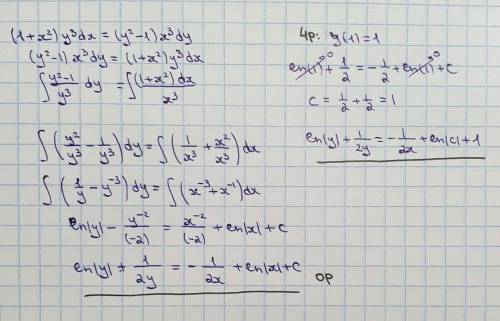 (1+x²) y³dx = (y²-1) x³dy
(y²-1) x³dy = (1+x²) y³dx
∫ (y²-1)/y³ dy = ∫ ((1+x²) dx)/x³
∫ (y²/y³ - 1/y³) dy = ∫ (1/x³ + x²/x³) dx
∫ (1/y - y⁻³) dy = ∫ (x⁻³ + x⁻¹) dx
ln|y| - y⁻²/(-2) = x⁻²/(-2) + ln|x| + C
ln|y| + 1/(2y) = - 1/(2x) + ln|x| + C
ОР
ЧР: y(1) = 1
ln(1)⁰ + 1/2 = - 1/2 + ln(1)⁰ + C
C = 1/2 + 1/2 = 1
ln|y| + 1/(2y) = - 1/(2x) + ln|c| + 1